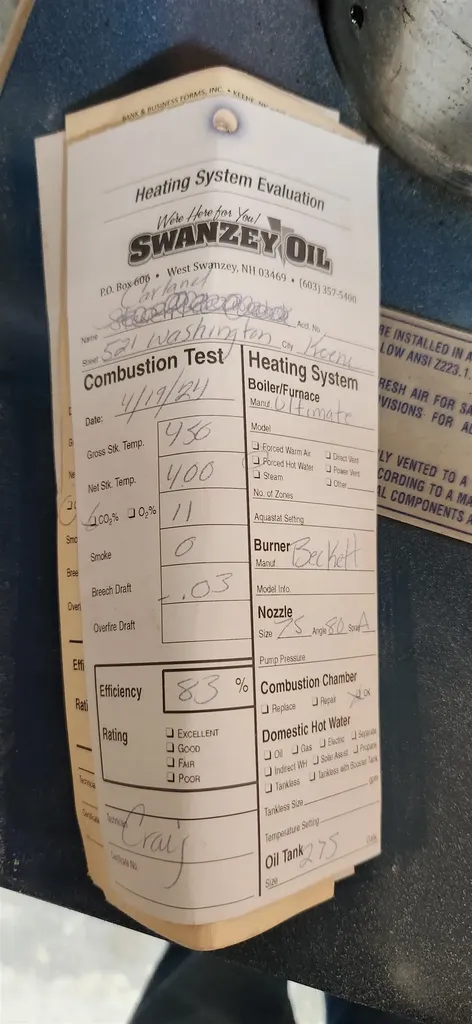 BANK & BUSINESS FORMS, INC. • KEENE, NH
Heating System Evaluation
We're Here for You!
SWANZEY OIL
P.O. Box 606 • West Swanzey, NH 03469 • (603) 357-5400
Name Acct. No.
Street 521 Washington City Keene
Combustion Test
Date: 4/19/24
Gross Stk. Temp. 450
Net Stk. Temp. 400
CO₂% O₂% 11
Smoke 0
Breech Draft -.03
Overfire Draft
Efficiency 83 %
Rating
EXCELLENT
GOOD
FAIR
POOR
Technician Craig
Certificate No.
Heating System
Boiler/Furnace
Manuf. Ultimate
Model
Forced Warm Air Direct Vent
Forced Hot Water Power Vent
Steam Other
No. of Zones
Aquastat Setting
Burner
Manuf. Beckett
Model Info.
Nozzle
Size 75 Angle 80 Spray A
Pump Pressure
Combustion Chamber
Replace Repair OK
Domestic Hot Water
Oil Gas Electric Separate
Indirect WH Solar Assist Propane
Tankless Tankless with Booster Tank
Tankless Size gpm
Temperature Setting
Oil Tank 275
Size
BE INSTALLED IN A
LOW ANSI Z223.1.
RESH AIR FOR SA
VISIONS FOR AD
LY VENTED TO A
CORDING TO A MA
AL COMPONENTS A